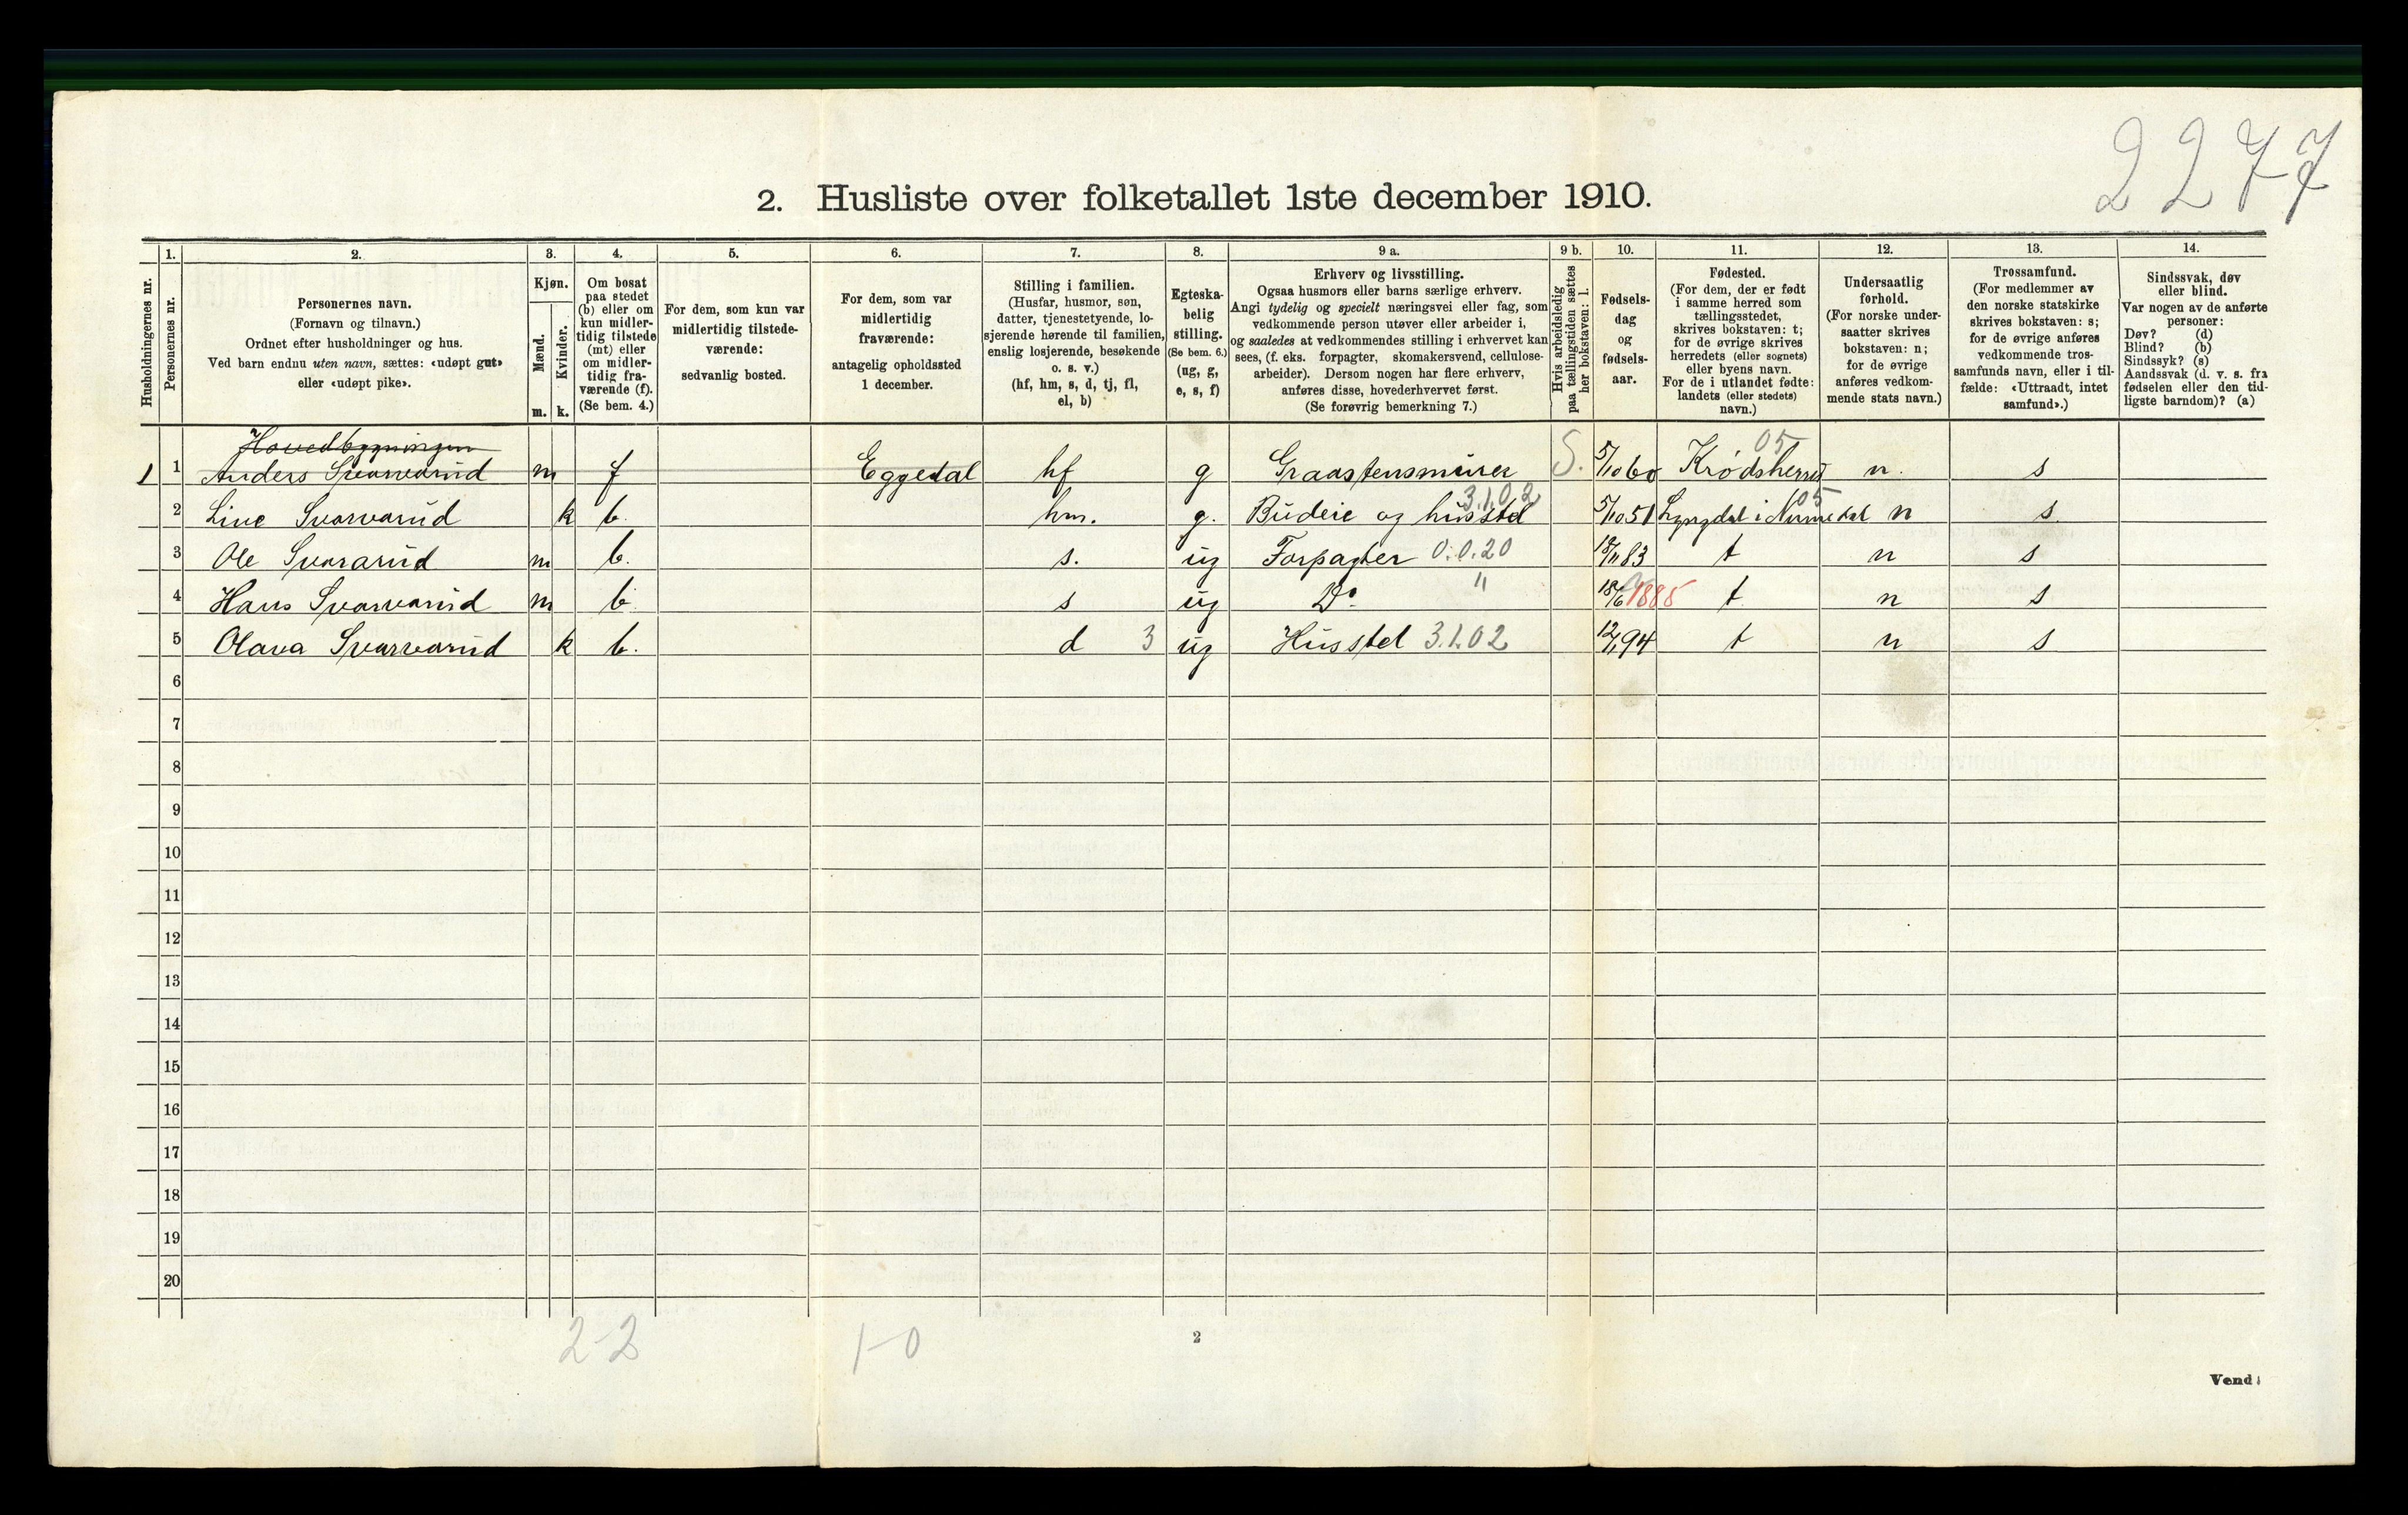 2277
2. Husliste over folketallet 1ste december 1910.
Husholdningernes nr.
1.
Personernes nr.
2.
Personernes navn.
(Fornavn og tilnavn.)
Ordnet efter husholdninger og hus.
Ved barn endnu uten navn, sættes: «udøpt gut»
eller «udøpt pike».
3.
Kjøn.
Mænd.
Kvinder.
m. k.
4.
Om bosat
paa stedet
(b) eller om
kun midler-
tidig tilstede
(mt) eller
om midler-
tidig fra-
værende (f).
(Se bem. 4.)
5.
For dem, som kun var
midlertidig tilstede-
værende:
sedvanlig bosted.
6.
For dem, som var
midlertidig
fraværende:
antagelig opholdssted
1 december.
7.
Stilling i familien.
(Husfar, husmor, søn,
datter, tjenestetyende, lo-
sjerende hørende til familien,
enslig losjerende, besøkende
o. s. v.)
(hf, hm, s, d, tj, fl,
el, b)
8.
Egteska-
belig
stilling.
(Se bem. 6.)
(ug, g,
e, s, f)
9 a.
Erhverv og livsstilling.
Ogsaa husmors eller barns særlige erhverv.
Angi tydelig og specielt næringsvei eller fag, som
vedkommende person utøver eller arbeider i,
og saaledes at vedkommendes stilling i erhvervet kan
sees, (f. eks. forpagter, skomakersvend, cellulose-
arbeider). Dersom nogen har flere erhverv,
anføres disse, hovederhvervet først.
(Se forøvrig bemerkning 7.)
9 b.
Hvis arbeidsledig
paa tællingstiden sættes
her bokstaven: l.
10.
Fødsels-
dag
og
fødsels-
aar.
11.
Fødested.
(For dem, der er født
i samme herred som
tællingsstedet,
skrives bokstaven: t;
for de øvrige skrives
herredets (eller sognets)
eller byens navn.
For de i utlandet fødte:
landets (eller stedets)
navn.)
12.
Undersaatlig
forhold.
(For norske under-
saatter skrives
bokstaven: n;
for de øvrige
anføres vedkom-
mende stats navn.)
13.
Trossamfund.
(For medlemmer av
den norske statskirke
skrives bokstaven: s;
for de øvrige anføres
vedkommende tros-
samfunds navn, eller i til-
fælde: «Uttraadt, intet
samfund».)
14.
Sindssvak, døv
eller blind.
Var nogen av de anførte
personer:
Døv? (d)
Blind? (b)
Sindssyk? (s)
Aandssvak (d. v. s. fra
fødselen eller den tid-
ligste barndom)? (a)
Hovedbygningen
1 1 Anders Svarvarud m f Eggedal hf g Graastensmurer S. 5/10 60 Krødsherred 05 n. s
2 Live Svarvarud k b. hm. g. Budeie og husstel 3.1.02 5/10 51 Lyngdal i Numedal 05 n s.
3 Ole Svararud m b. s. ug Forpagter 0.0.20 18/11 83 t n s
4 Hans Svarvarud m b. s ug Do. " 18/6 1885 t n s
5 Olava Svarvarud k b. d 3 ug Husstel 3.1.02 12/1 94 t n s
6
7
8
9
10
11
12
13
14
15
16
17
18
19
20
2-2 1-0
2
Vend!